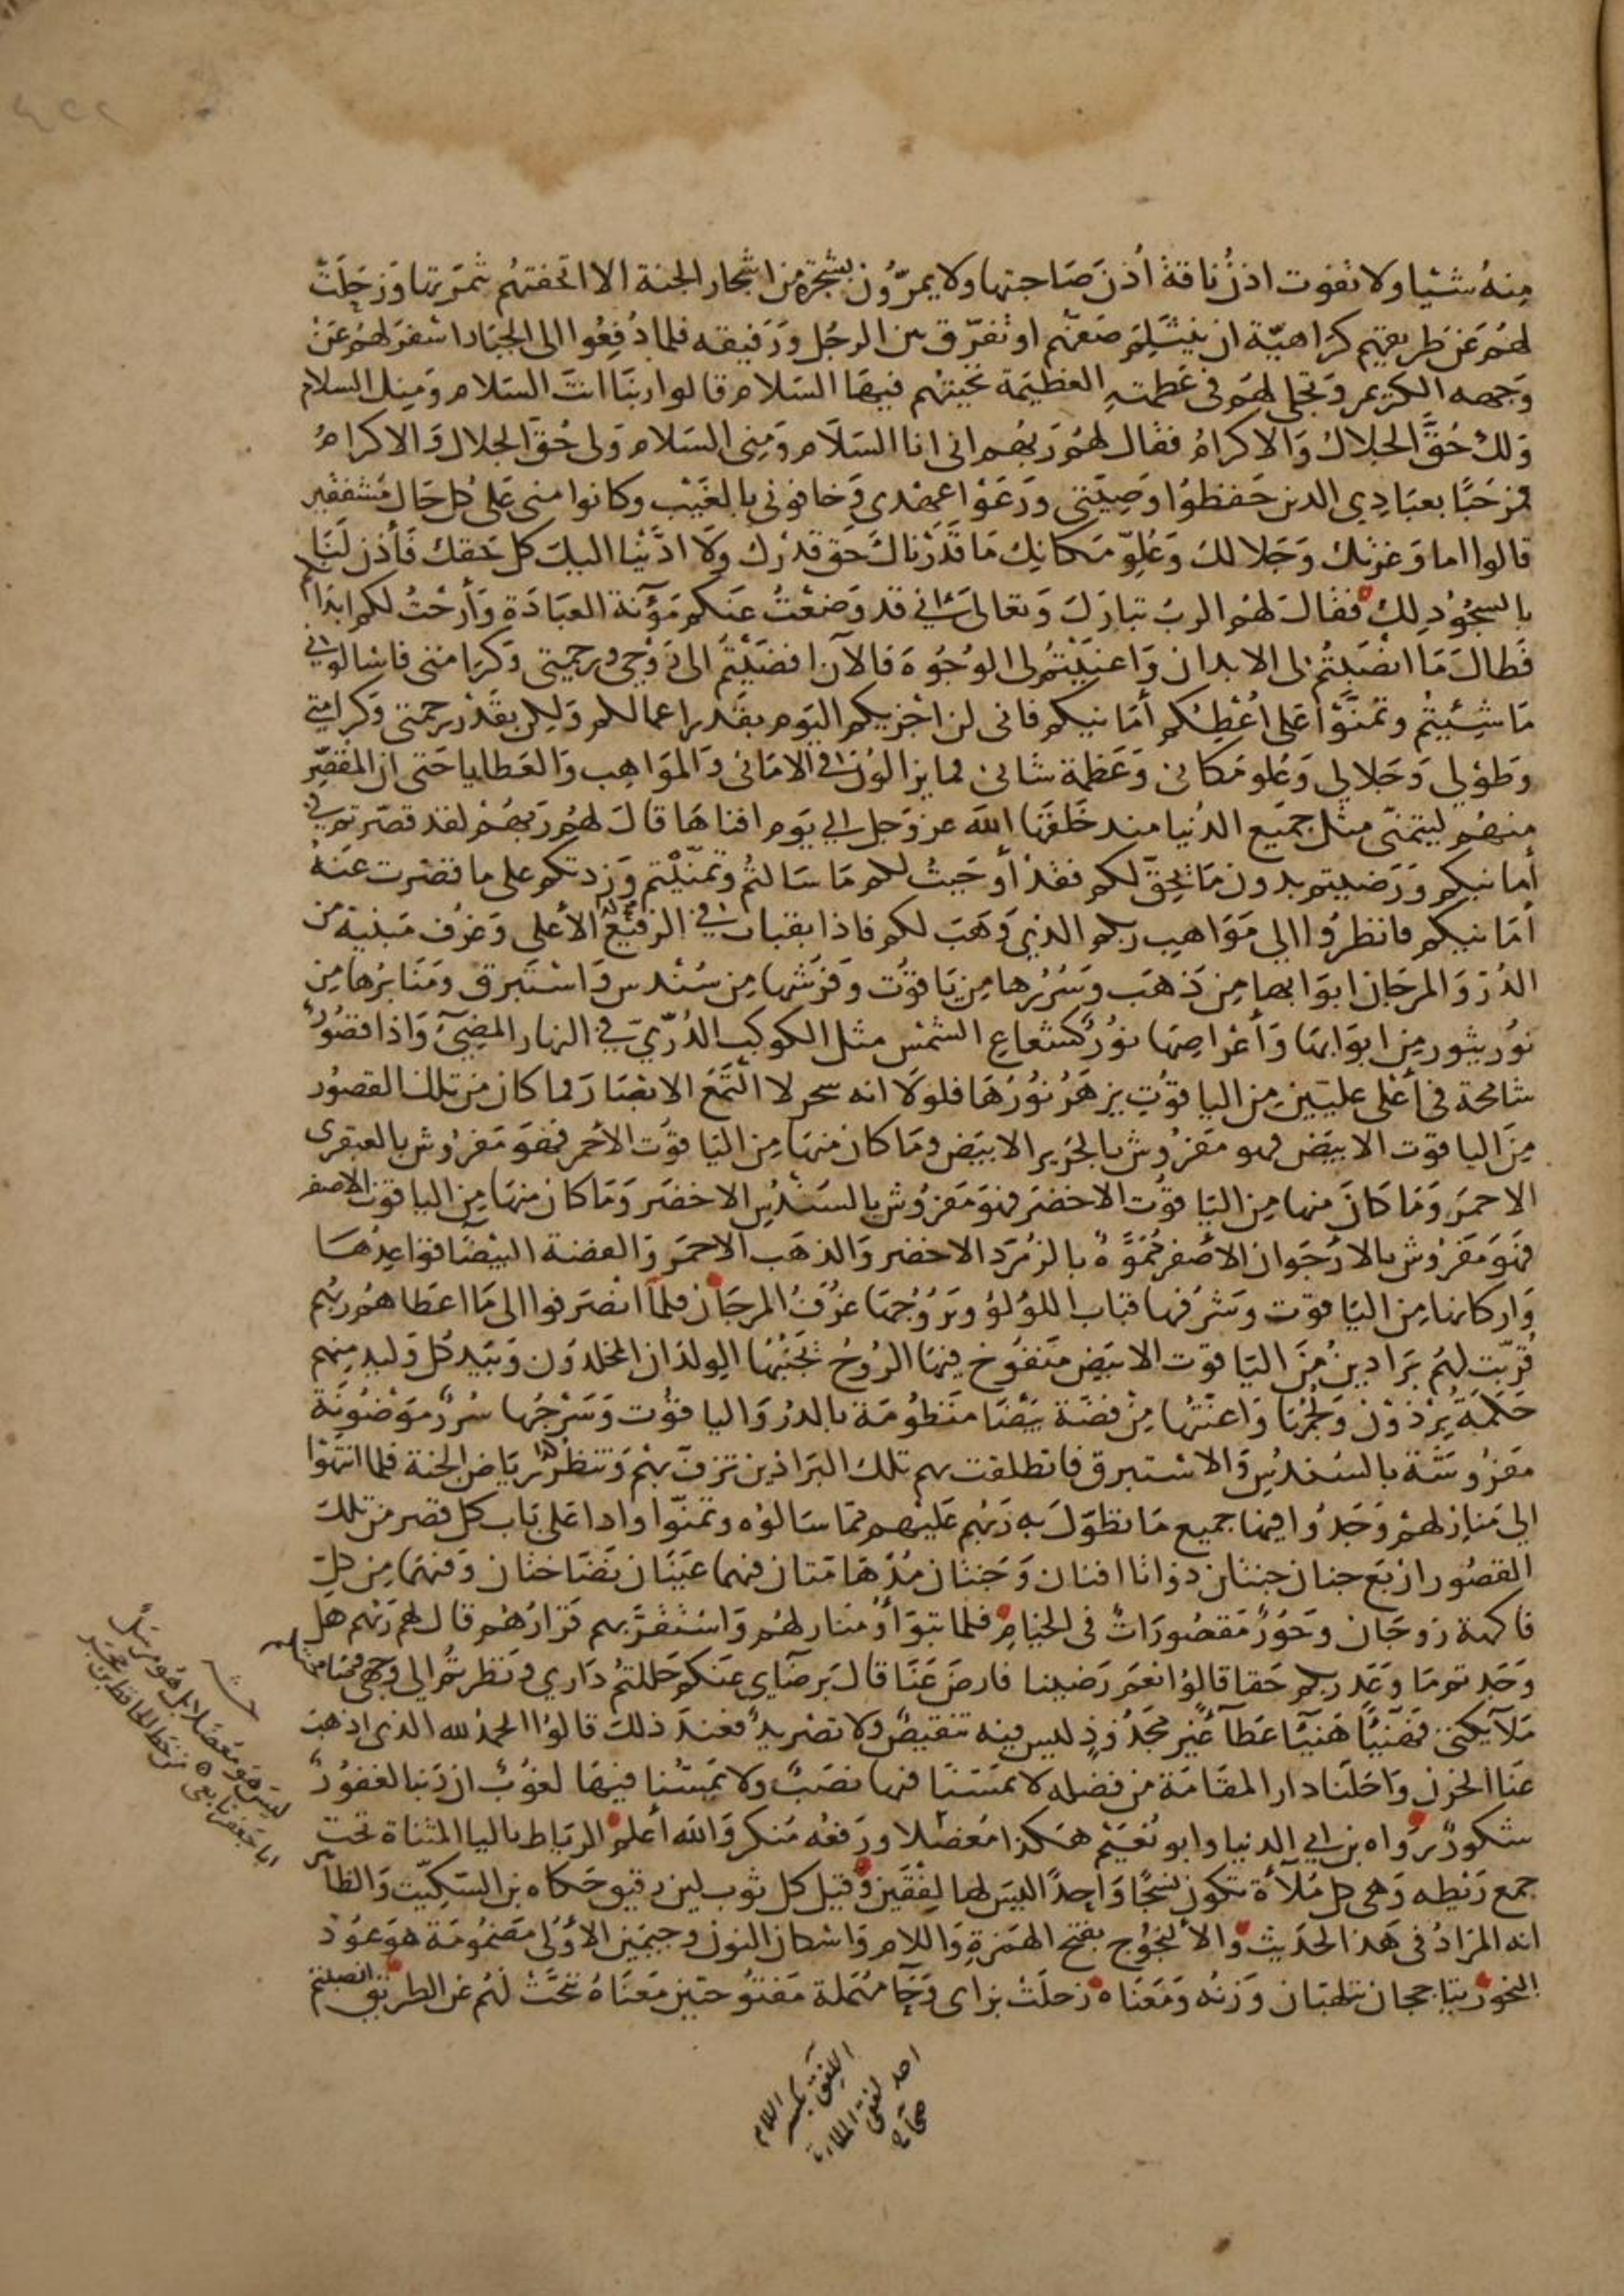 منهُ شيئا ولا تفوت اذنُ ناقة أذنَ صَاحبتها ولا يمرّون بشجرة من اشجار الجنة الا اتحفتهُم بثمرتها وَزحَلَت
لهُم عَن طريقهم كراهيّة ان ينثلم صَفهّم او تفرّق بين الرجُل وَرَفيقه فلما دُفِعُوا الى الجبّار اسْفرَ لهُم عَن
وَجهه الكريم وَتجلى لهُم في عَظمتهِ العَظيمَة تحيتهُم فيهَا السَلام قالوا ربنَا انتَ السَلام وَمنك السلام
وَلك حُقّ الجلال وَالاكرامُ فقال لهُم رَبهُم اني انا السَلَام وَمِنى السَلام وَلى حُق الجلال وَالاكرامُ
فمرْحَبًا بعبَادِي الذين حَفظوُا وَصِيّتى وَرَعَوْا عَهْدى وَخافونى بالغَيْب وكانوا منى عَلى كل حَال مُشفقين
قالوا اما وَعزتك وَجَلالك وَعُلوّ مَكانك مَا قَدَرْناك حَق قدْرك وَلَا ادَّيْنا اليك كل حَقك فَأذن لنَا
بالسجُوُد لك فقال لهُم الربُ تبارَكَ وَتعالىَ اني قد وَضعْتُ عَنكم مَؤنة العبَادَة وَأرَحْتُ لكم ابدَانكم
فَطالَ مَا انصَبتُم لى الابدان وَاعنيْتُم لى الوجُوُهَ فالآن افضَيْتُم الى رَوْحى وَرحمتي وَكرامتى فاسْالوني
مَا شِئيتُم وَتمنّوْا عَلى اُعْطِكم أمَانيكم فانى لن اجْزيكم اليَوم بقَدر اعمالكم وَلكن بقَدْر رَحمتى وَكرامتي
وَطوْلي وَجَلالي وَعُلو مَكانى وَعَظمة شانى فما يزالوُن في الامَانى وَالموَاهِب وَالعَطايا حَتى ان المقصّر
منهُم ليتمَنّى مثل جميَع الدُنيا منذ خَلقهَا اللهَ عز وَجل الي يَوم افناهَا قالَ لهُم رَبهُم لقد قصّرتم في
أمانيكم وَرَضيتم بدون مَا يحِقّ لكم فقدْ أوجَبتُ لكم مَا سَالتُم وَتمنَيْتم وَزدتكم على ما قصْرت عَنهُ
أمَانيكم فانظرُوا الي مَوَاهب ربكم الذي وَهَبَ لكم فاذا بقباب في الرفيْع الأعلى وَغرُف مَبنيّة من
الدُرّ وَالمرجَان ابوَابها مِن ذهَب وَسُرُرها مِن يَاقوُت وَفرُشها مِن سُندس وَاسْتَبرق وَمَنابرُها مِن
نوُر يثور مِن ابوَابها وَأعْراصهَا نوُر كشعَاع الشمْس مثل الكوكب الدُرّيّ في النهار المضئ وَاذا قصُوُر
شامخة في أعْلى عليّين مِن الياقوُت يزهَرُ نوُرُهَا فلوَلَا انه سخر لا التمَعَ الابْصَارَ فما كان من تلك القصوُر
مِنَ الياقوت الابيَض فهو مَفرُوش بالحَرير الابيَض وَمَا كان منهَا مِن اليَاقوُت الأحمر فهوَ مَفرُوش بالعبقرى
الاحمرَ وَمَا كانَ منها مِن اليَاقوُت الاخضَر فهوَ مَفرُوش بالسنْدُس الاخضَر وَمَا كان منهَا مِن الياقوت الاصفر
فهَوَ مَفرُوش بالارْجَوان الأصْفر مُمَوّهٌ بالزمُرّد الاخضر وَالذهَب الاحمرَ وَالفضة البيْضَا قوَاعِدُهَا
وَاركانها مِن اليَاقوت وَشرُفها قبَاب اللوُلؤ وَبرُوُجهَا غرُفُ المرجَان فلمّا انْصَرفوا الى مَا اعطَاهُم ربُهم
قُرّبت لهُم بَرَاذينُ مِنَ اليَاقوت الابيَض مَنفوُخ فيهَا الرُوُحُ بجنبُهَا الوِلدَان المخلدوَن وَبيَد كُل وَليد منِهم
حَكَمَةُ بِرْذوْن وَلجُمُهَا وَاعنّتهُا مِنْ فضّة بَيْضَا مَنظوُمَة بالدرُ وَالياقوُت وَسَرْجهُا سُررٌ مَوْضُونة
مَفرُوشة بالسُندُس وَالاسْتبرق فانطلقت بهم تلك البَراذين تزف بهمْ وَتنظرُ رِيَاضَ الجنة فلما انتهَوْا
الي مَنازلهمْ وَجَدُوا فيهَا جميع مَا تطوَل بهِ رَبهُم عَليْهم ممّا سَالوُه وَتمنّوا واذا عَلى بَاب كل قصر من تلك
القصُور ارْبَع جنان جنتان ذوَاتا افنان وَجَنتان مُدْهَامّتان فيهما عَيْنَان نضّاخَتان وَفيهمَا مِن كل
فاكهة زوجَان وَحُوُرٌ مَقصُورَاتٌ فى الخيَام فلما تبوّأوُا مَنازلهُم وَاسْتقرّ بهم قرَارُهُم قال لهم رَبهم هل
وَجَدتم مَا وَعَد ربكم حَقا قالوُا نعَم رَضينا فارضَ عَنَّا قالَ برضَاى عَنكم حَللتُم دَارى وَنظرتمُ الي وَجهى وَصَافحتكم
مَلآئكتى فهَنيْئًا هَنيئًا عَطآءً غير مَجْذُوذٍ ليس فيه تنقيصٌ وَلا تصْريدٌ فعندَ ذلكَ قالوُا الحمدُ لله الذى اذهبَ
عَنا الحزن وَاحَلنَا دار المقامَة من فضله لا يمَسّنَا فيها نصَبٌ ولا يمَسّنا فيهَا لغوُبٌ ان رَبنا لغفوُرٌ
شكورٌ رَوَاه بن ابي الدنيا وابو نُعَيْم هَكذا مُعضَلا وَرفعُه مُنكر وَالله أعلم الريَاط باليا المثناة تحت
جمع رَيْطه وَهى كل مُلآءَة تكون نسْجًا وَاحِدًا ليسَ لها لِفْقَين وَقيل كل ثوب لين رقيق حَكاه بن السِكيّت وَالظاهر
انه المرَادُ فى هَذا الحَديث والأُلنْجوُج بفتح الهَمزةِ وَاللام وَاسْكان النون وَجيمَيْن الأوُلى مَضمُومَة هوَ عوُدْ
البخوُر يتَاججان يتلهبَان وَزنه وَمَعَناه زحلَتْ بزاى وَحَآ مُهملة مَفتوُحتين مَعنَاهُ تنحَّتْ لهُم عَن الطريق انصبتم
حش
ليسَ هوَ معضلا بل هُو مرسَل
ابا جعفر تابعى من خط الحافظ بن حجر
اللِفق بكسر اللام
احد لفقى الملاءة
صحاح